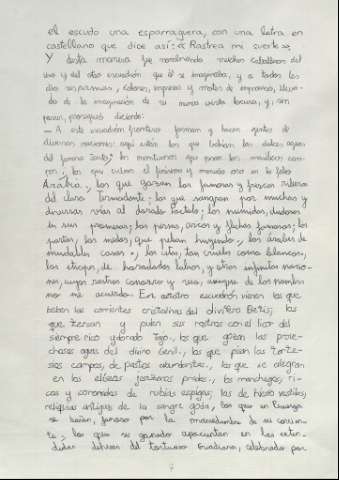 el escudo una esparraguera, con una letra en
castellano que dice así: «Rastrea mi suerte».
Y desta manera fue nombrando muchos caballeros del
uno y del otro escuadrón que él se imaginaba, y a todos les
dio sus armas, colores, empresas y motes de improviso, lleva-
do de la imaginación de su nunca vista locura, y, sin
parar, prosiguió diciendo:
— A este escuadrón frontero forman y hacen gentes de
diversas naciones: aquí están los que bebían las dulces aguas
del famoso Janto; los montuosos que pisan los masílicos cam-
pos; los que criban el finísimo y menudo oro en la felice
Arabia; los que gozan las famosas y frescas riberas
del claro Termodonte; los que sangran por muchas y
diversas vías al dorado Pactolo; los númidas, dudosos
en sus promesas; los persas, arcos y flechas famosos; los
partos, los medos, que pelean huyendo; los árabes de
mudables casas; los citas, tan crueles como blancos;
los etíopes, de horadados labios, y otras infinitas nacio-
nes, cuyos rostros conozco y veo, aunque de los nombres
no me acuerdo. En estotro escuadrón vienen los que
beben las corrientes cristalinas del olivífero Betis; los
que tersan y pulen sus rostros con el licor del
siempre rico y dorado Tajo; los que gozan las prove-
chosas aguas del divino Genil; los que pisan los tarte-
sios campos, de pastos abundantes; los que se alegran
en los elíseos jerezanos prados; los manchegos, ri-
cos y coronados de rubias espigas; los de hierro vestidos,
reliquias antiguas de la sangre goda; los que en Pisuerga
se bañan, famoso por la mansedumbre de su corrien-
te; los que su ganado apacientan en las exten-
didas dehesas del tortuoso Guadiana, celebrado por